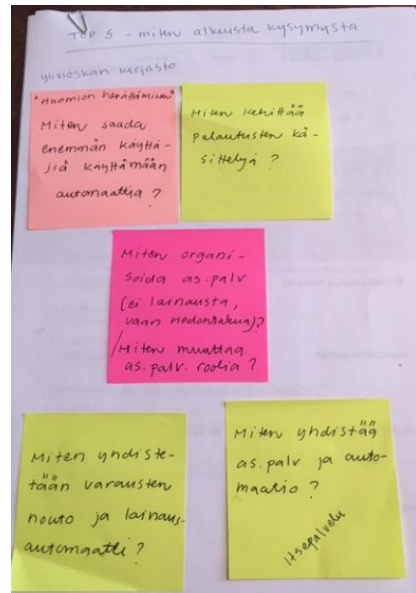 TOP 5 - miten alkuista kysymystä
Ylivieskan kirjasto
"Huomion herättäminen"
Miten saada
enemmän käyttä-
jiä käyttämään
automaattia?
Miten kehittää
palautusten kä-
sittelyä?
Miten organi-
soida as.palv
(ei lainausta,
vaan tiedonhakua)?
/Miten muuttaa
as.palv. roolia?
Miten yhdiste-
tään varausten
nouto ja lainaus-
automaatti?
Miten yhdistää
as.palv ja auto-
maatio?
itsepalvelu